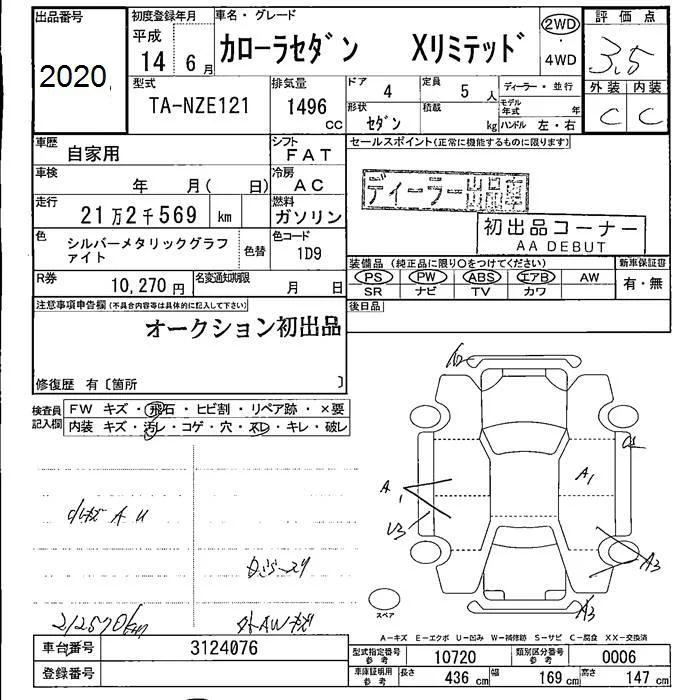 出品番号
2020
初度登録年月
平成
14 6月
車名・グレード
カローラセダン Xリミテッド
2WD
・
4WD
評価点
3.5
外装 内装
C C
型式
TA-NZE121
排気量
1496
CC
ドア
4
定員
5 人
形状
セダン
積載
kg
ディーラー・並行
モデル年式 年
ハンドル 左・右
車歴
自家用
シフト
FAT
セールスポイント(正常に機能するものに限ります)
車検
年 月( 日)
冷房
AC
ディーラー出品車
走行
21万2千569 km
燃料
ガソリン
初出品コーナー
AA DEBUT
色
シルバーメタリックグラファイト
色替
色コード
1D9
装備品(純正品に限り○をつけてください)
新車保証書
PS PW ABS エアB AW
有・無
SR ナビ TV カワ
R券
10,270円
名変通知期限
月 日
後日品
注意事項申告欄(不具合内容等は具体的に記入して下さい)
オークション初出品
修復歴 有〔箇所 〕
検査員記入欄
FW キズ・飛石・ヒビ割・リペア跡・×要
内装 キズ・汚レ・コゲ・穴・スレ・キレ・破レ
A U
212570km
AWキズ
A1
A
1
U3
A3
A3
スペア
A−キズ E−エクボ U−凹み W−補修跡 S−サビ C−腐食 XX−交換済
車台番号
3124076
登録番号
型式指定番号
参考
10720
類別区分番号
参考
0006
車庫証明用
参考
長さ
436 cm
幅
169 cm
高さ
147 cm